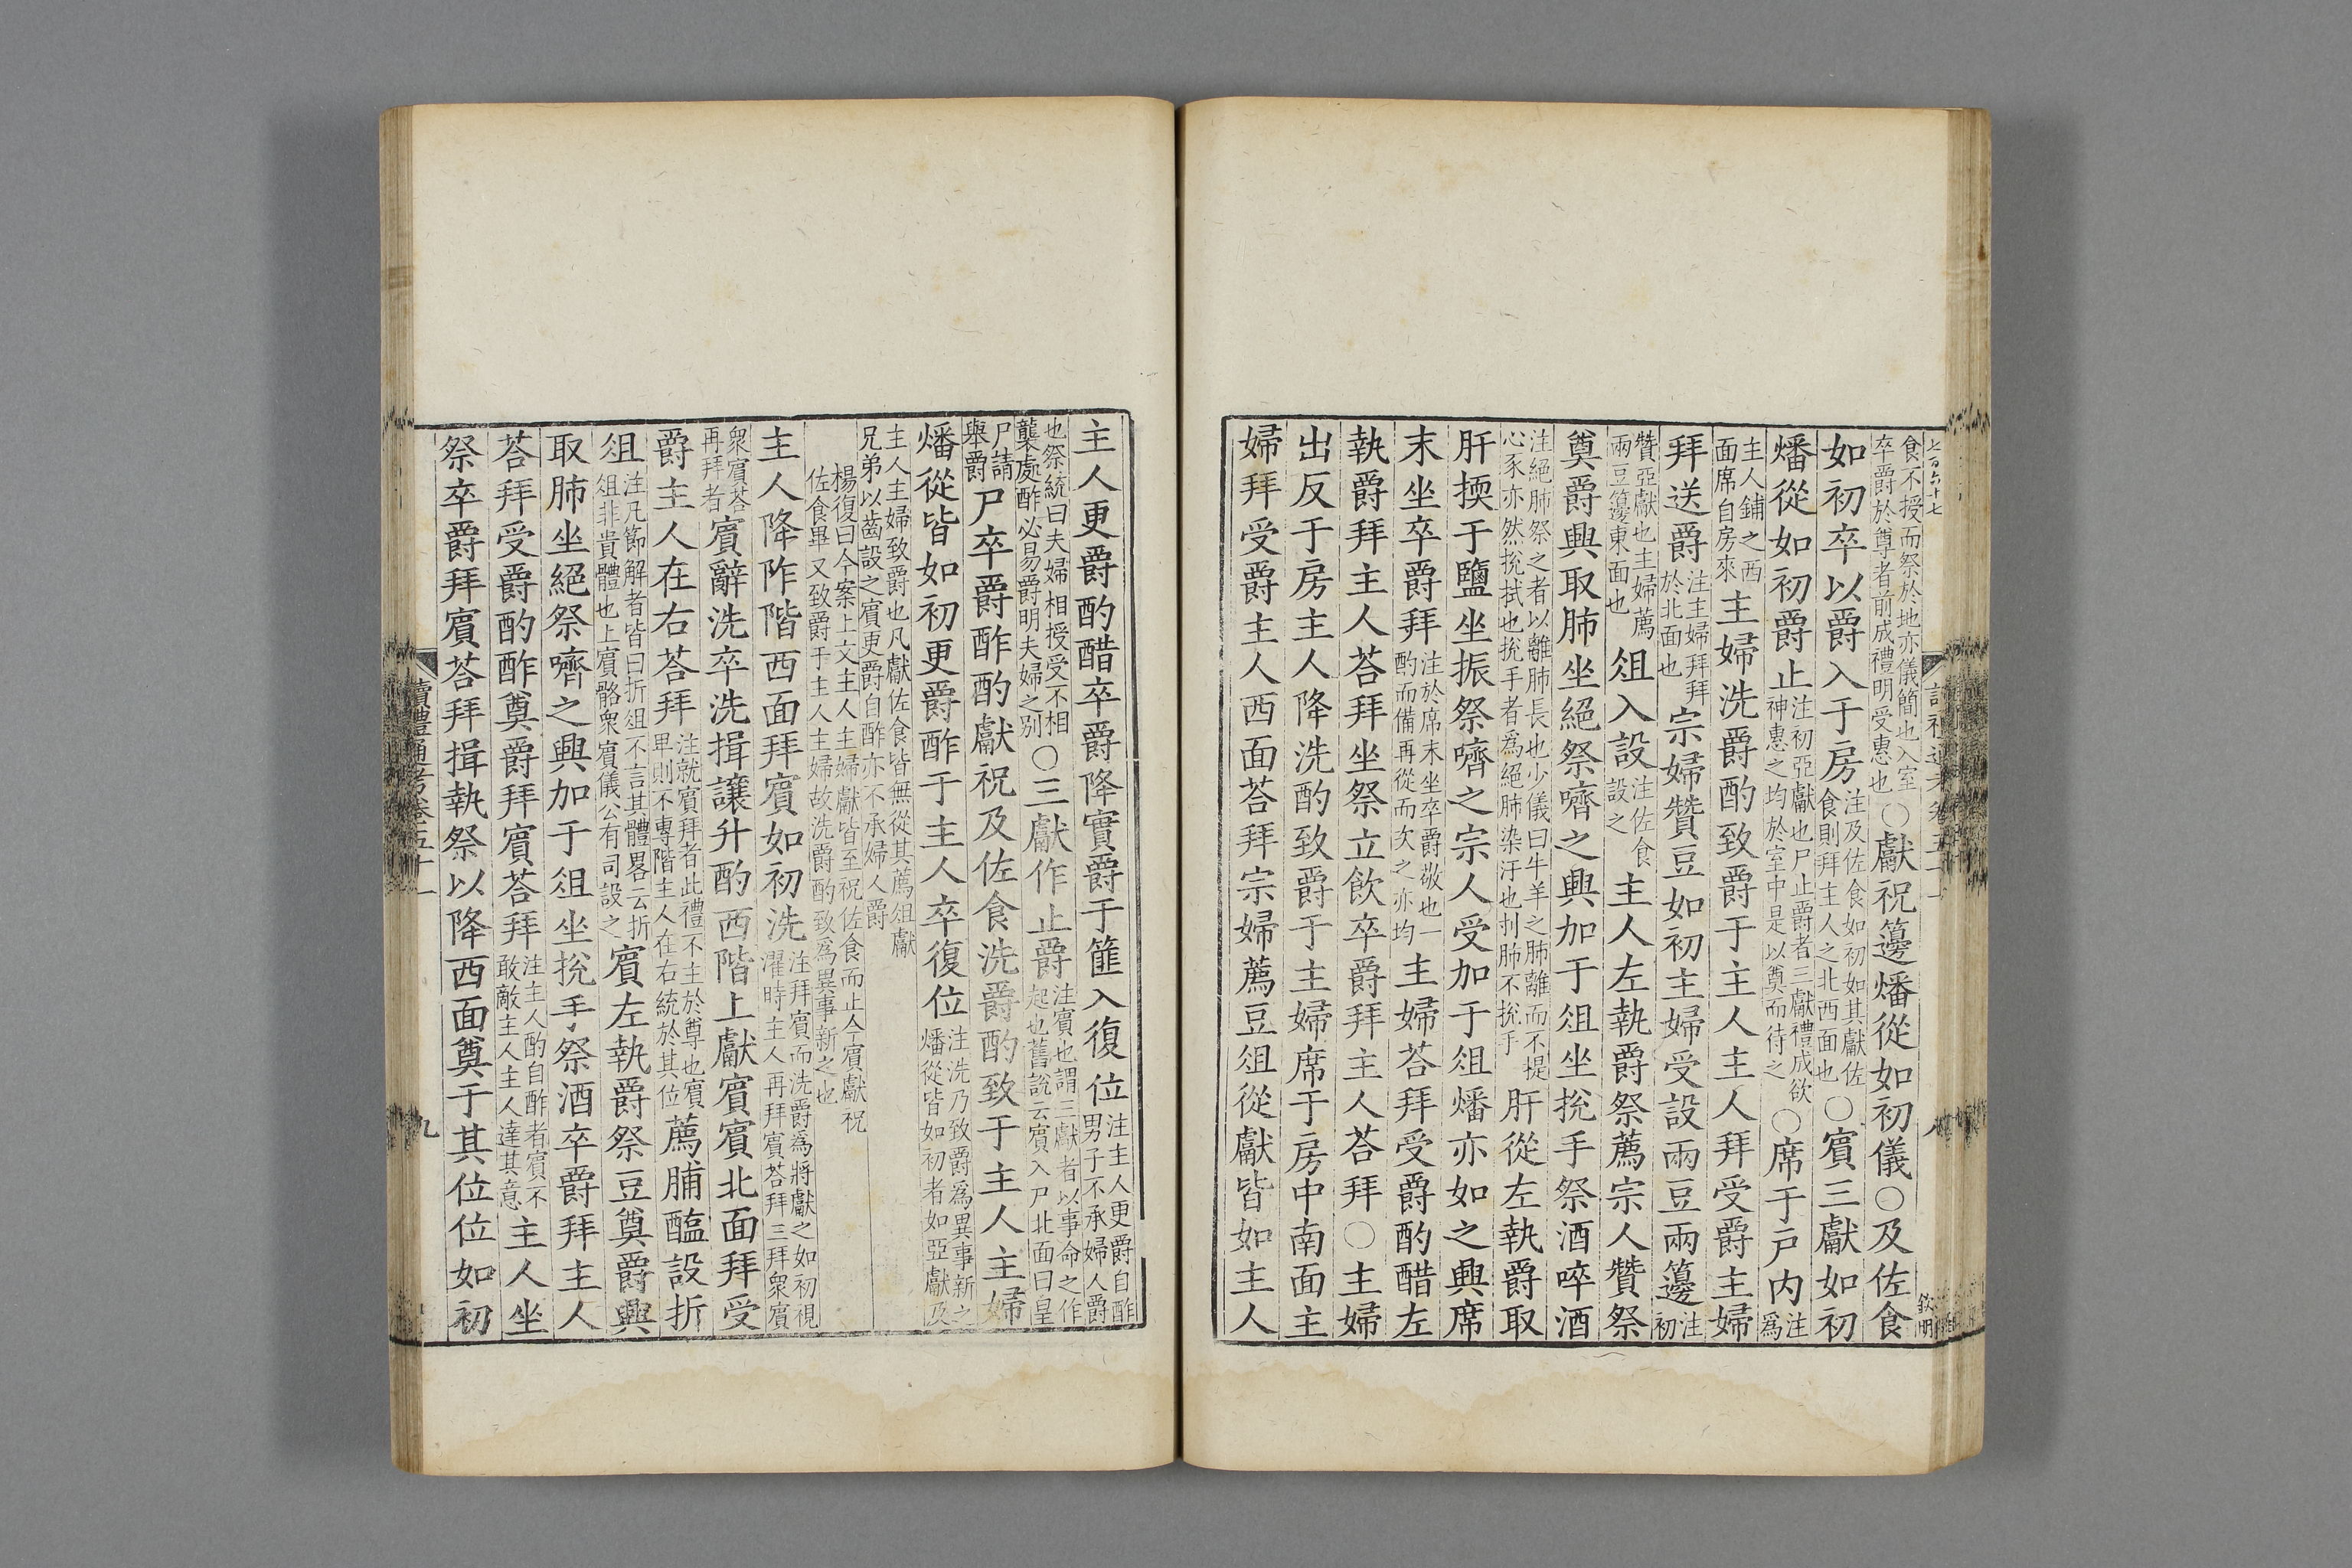 食不授而祭於地亦儀簡也入室
卒爵於尊者前成禮明受惠也
○獻祝籩燔從如初儀○及佐食
如初卒以爵入于房
注及佐食如初如其獻佐
食則拜主人之北西面也
○賓三獻如初
燔從如初爵止
注初亞獻也尸止爵者三獻禮成欲
神惠之均於室中是以奠而待之
○席于戶内
注
爲
主人鋪之西
面席自房來
主婦洗爵酌致爵于主人主人拜受爵主婦
拜送爵
注主婦拜拜
於北面也
宗婦贊豆如初主婦受設兩豆兩籩
注
初
贊亞獻也主婦薦
兩豆籩東面也
俎入設
注佐食
設之
主人左執爵祭薦宗人贊祭
奠爵興取肺坐絕祭嚌之興加于俎坐挩手祭酒啐酒
注絕肺祭之者以離肺長也少儀曰牛羊之肺離而不提
心豕亦然挩拭也挩手者爲絕肺染汙也刌肺不挩手
肝從左執爵取
肝擩于鹽坐振祭嚌之宗人受加于俎燔亦如之興席
末坐卒爵拜
注於席末坐卒爵敬也一
酌而備再從而次之亦均
主婦荅拜受爵酌醋左
執爵拜主人荅拜坐祭立飲卒爵拜主人荅拜○主婦
出反于房主人降洗酌致爵于主婦席于房中南面主
婦拜受爵主人西面荅拜宗婦薦豆俎從獻皆如主人
主人更爵酌醋卒爵降實爵于篚入復位
注主人更爵自酢
男子不承婦人爵
也祭統曰夫婦相授受不相
襲處酢必易爵明夫婦之别
○三獻作止爵
注賓也謂三獻者以事命之作
起也舊說云賓入尸北面曰皇
尸請
舉爵
尸卒爵酢酌獻祝及佐食洗爵酌致于主人主婦
燔從皆如初更爵酢于主人卒復位
注洗乃致爵爲異事新之
燔從皆如初者如亞獻及
主人主婦致爵也凡獻佐食皆無從其薦俎獻
兄弟以齒設之賓更爵自酢亦不承婦人爵
楊復曰今案上文主人主婦獻皆至祝佐食而止今賓獻祝
佐食畢又致爵于主人主婦故洗爵酌致爲異事新之也
主人降阼階西面拜賓如初洗
注拜賓而洗爵爲將獻之如初視
濯時主人再拜賓荅拜三拜衆賓
衆賓荅
再拜者
賓辭洗卒洗揖讓升酌西階上獻賓賓北面拜受
爵主人在右荅拜
注就賓拜者此禮不主於尊也賓
卑則不專階主人在右統於其位
薦脯醢設折
俎
注凡節解者皆曰折俎不言其體畧云折
俎非貴體也上賓骼衆賓儀公有司設之
賓左執爵祭豆奠爵興
取肺坐絕祭嚌之興加于俎坐挩手祭酒卒爵拜主人
荅拜受爵酌酢奠爵拜賓荅拜
注主人酌自酢者賓不
敢敵主人主人達其意
主人坐
祭卒爵拜賓荅拜揖執祭以降西面奠于其位位如初
讀禮通考卷五十一
九